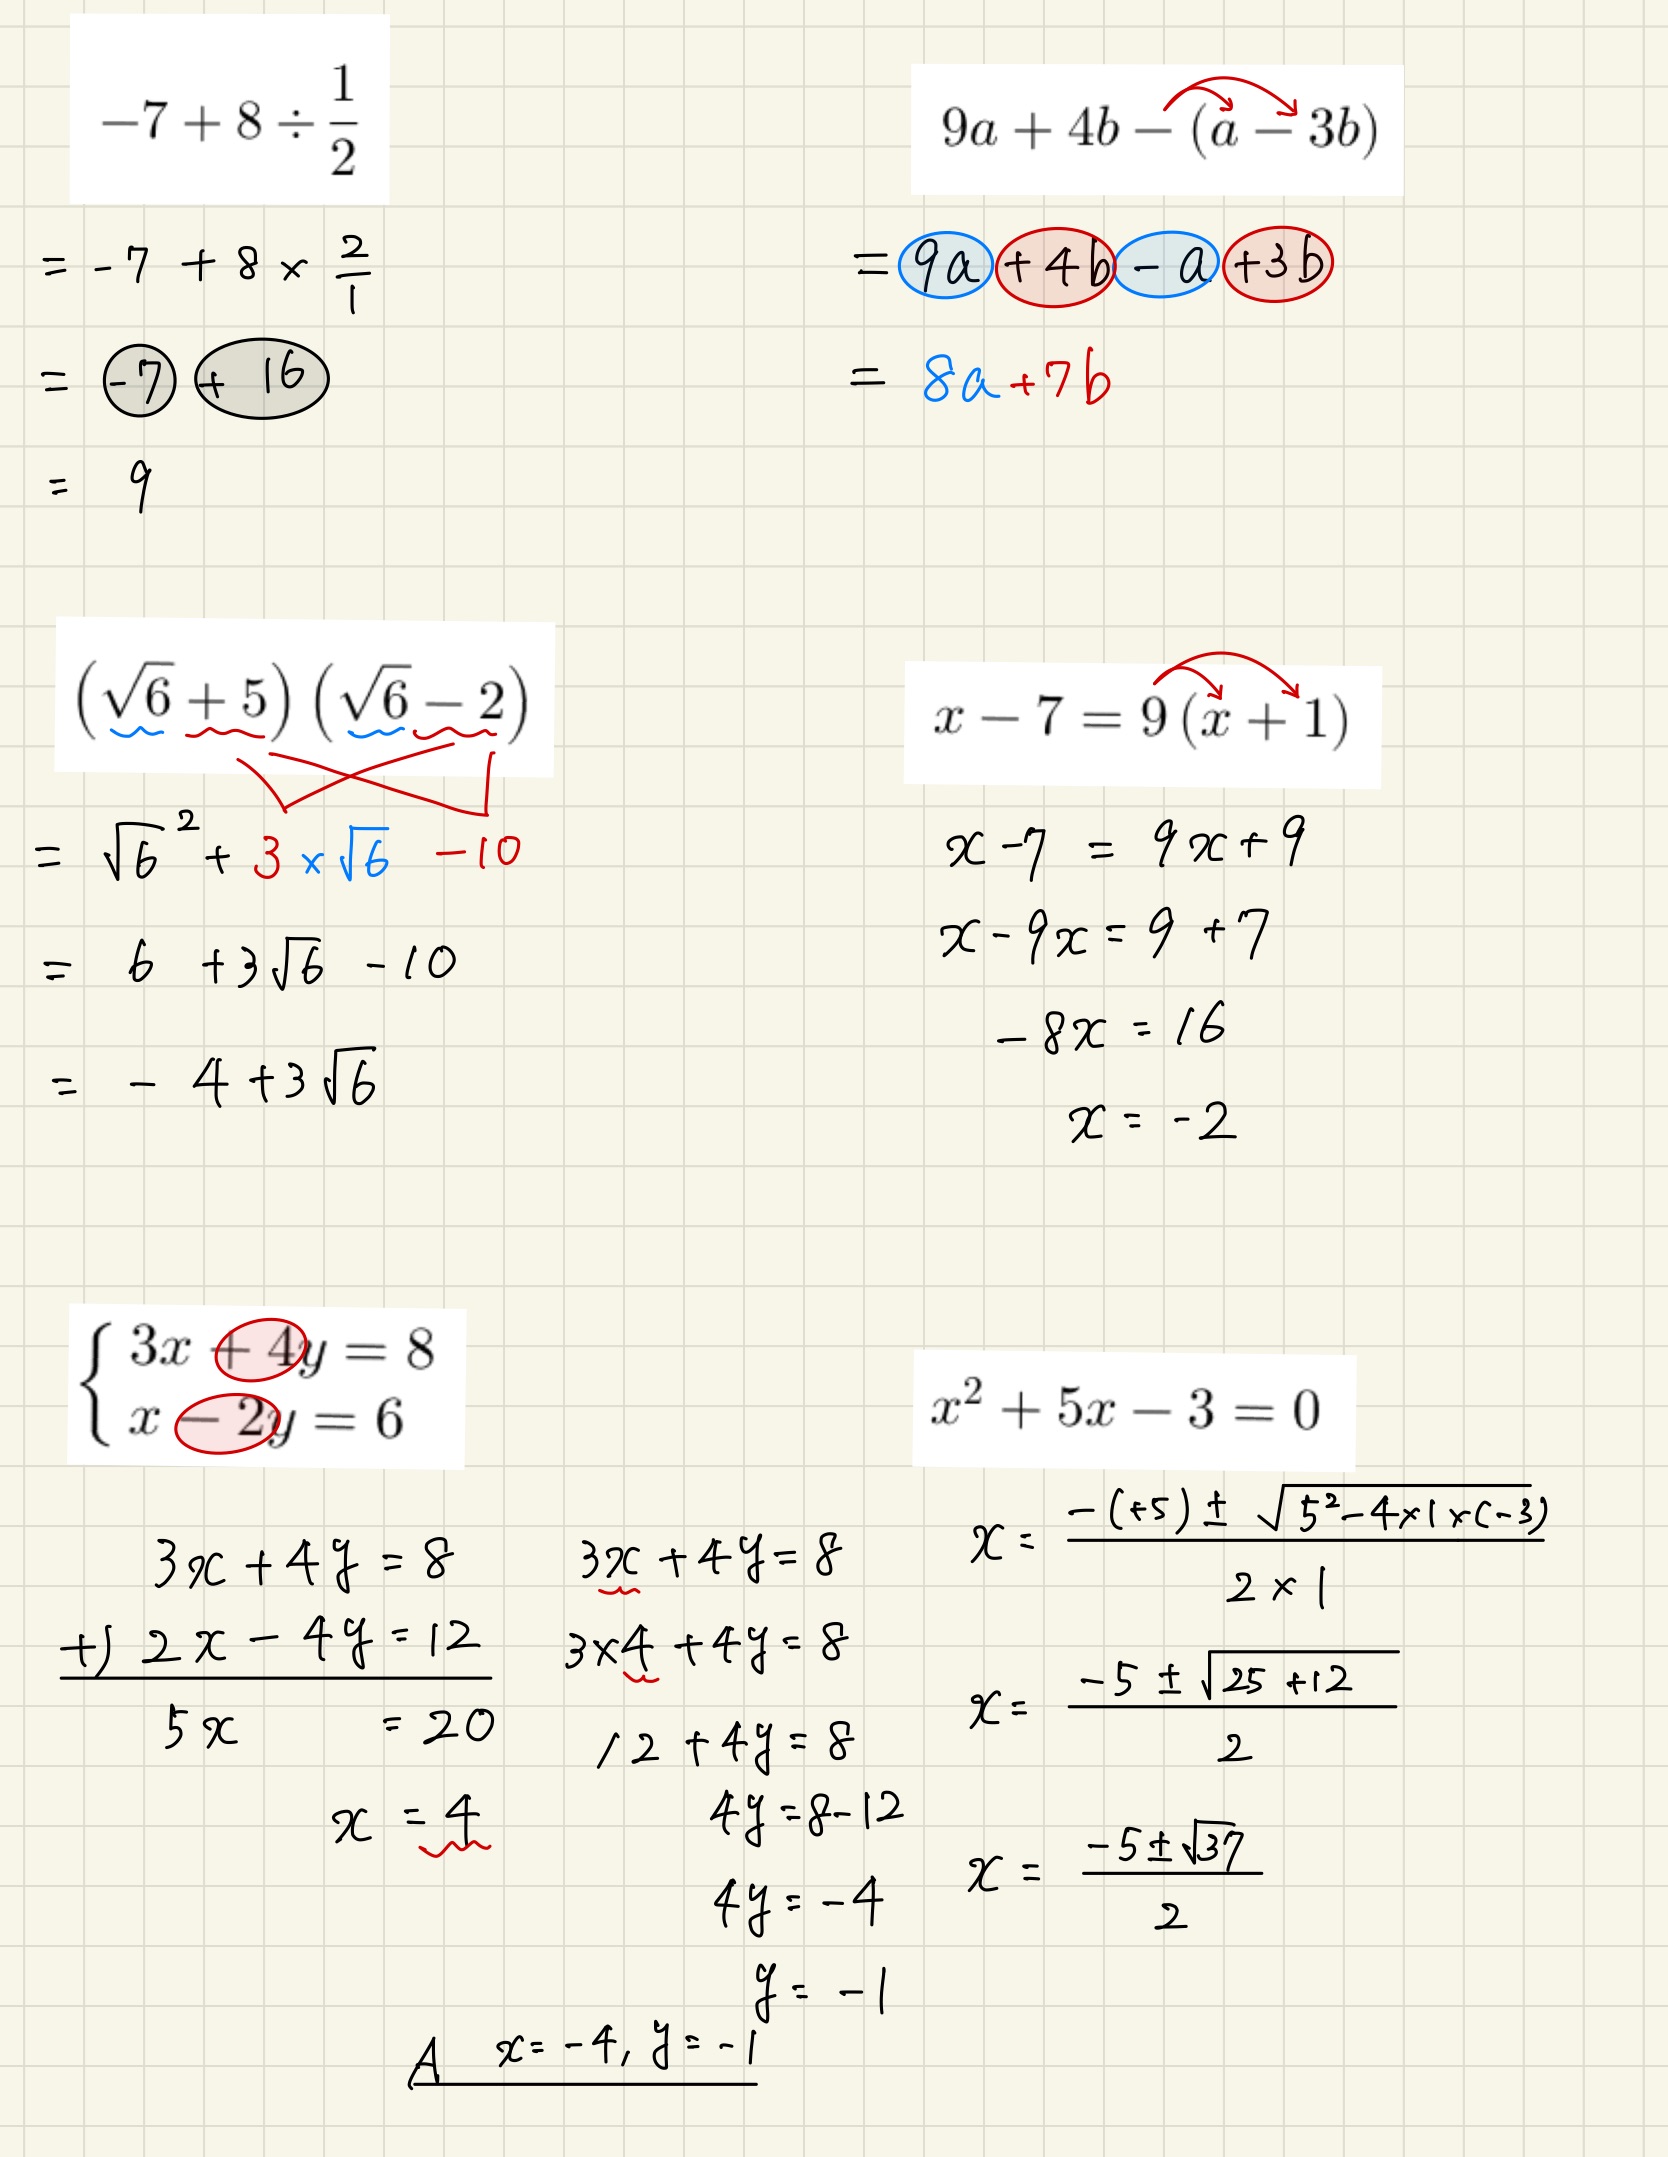 −7 + 8 ÷ 1/2
= -7 + 8 × 2/1
= -7 + 16
= 9
9a + 4b − (a − 3b)
= 9a + 4b - a + 3b
= 8a + 7b
(√6 + 5) (√6 − 2)
= √6² + 3 × √6 - 10
= 6 + 3√6 - 10
= - 4 + 3√6
x − 7 = 9 (x + 1)
x - 7 = 9x + 9
x - 9x = 9 + 7
- 8x = 16
x = -2
{ 3x + 4y = 8
x − 2y = 6
3x + 4y = 8
+) 2x - 4y = 12
5x = 20
x = 4
3x + 4y = 8
3×4 + 4y = 8
12 + 4y = 8
4y = 8-12
4y = -4
y = -1
A x = -4, y = -1
x² + 5x − 3 = 0
x = -(+5) ± √5²-4×1×(-3) / 2 × 1
x = -5 ± √25+12 / 2
x = -5 ± √37 / 2